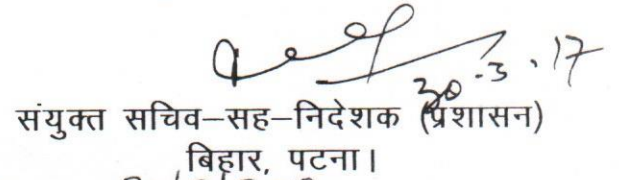 30-3.17
संयुक्त सचिव–सह–निदेशक (प्रशासन)
बिहार, पटना।